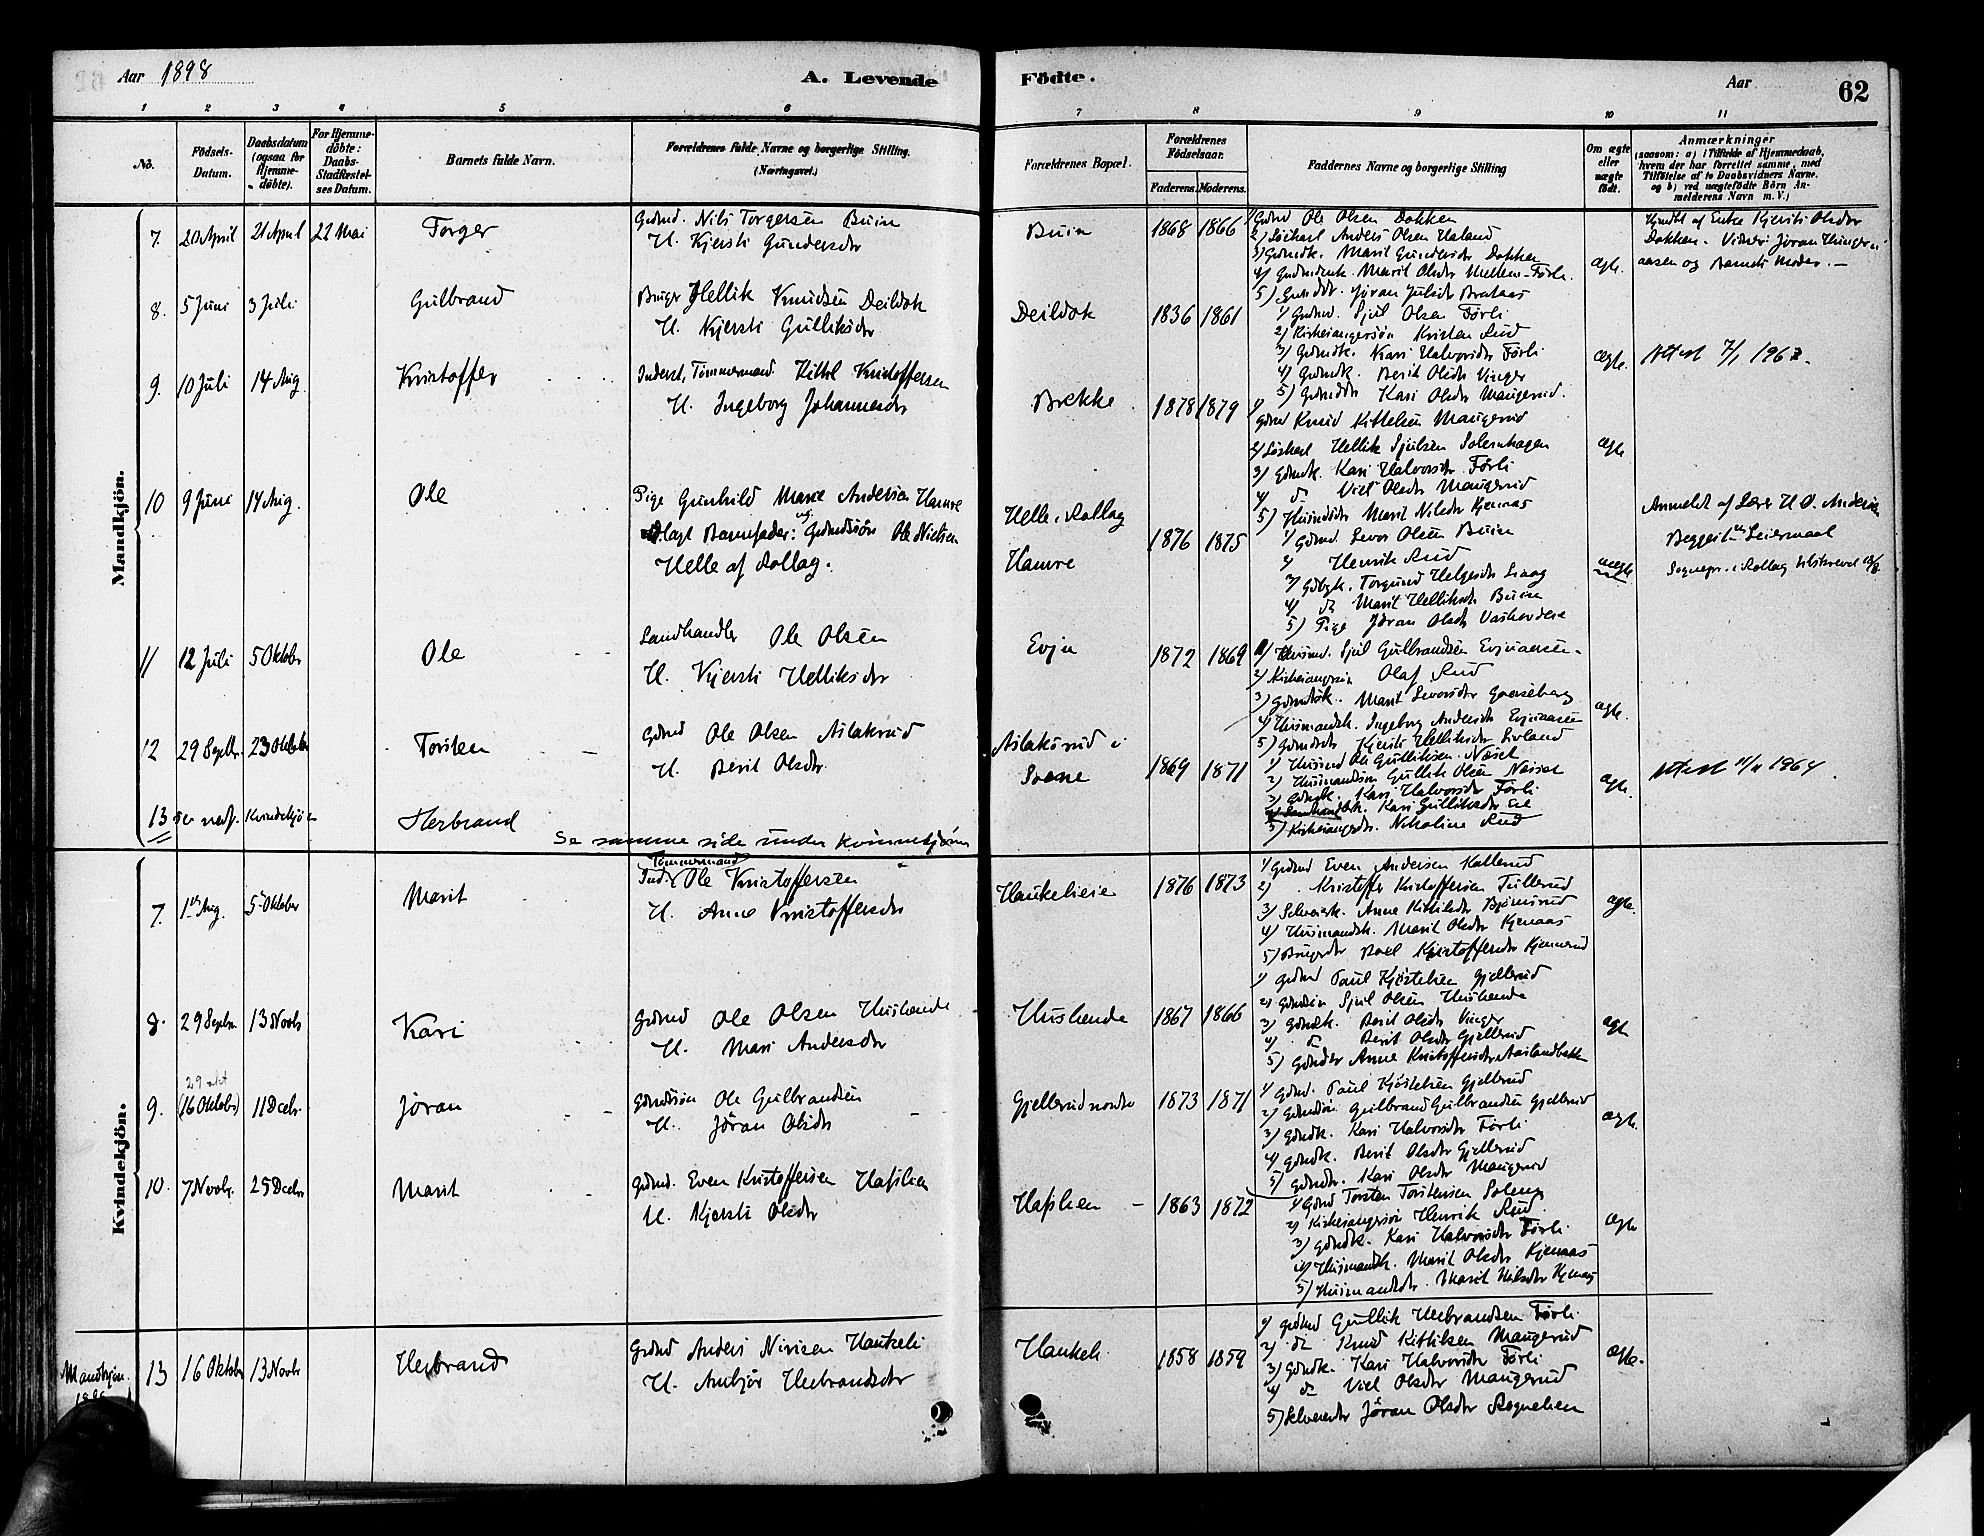 Aar 1898
A. Levende
Födte.
Aar
62
1 2 3 4 5 6 7 8 9 10 11
No.
Födsels-Datum.
Daabsdatum (ogsaa for Hjemme-döbte).
For Hjemme-döbte: Daabs-Stadfæstel-ses Datum.
Barnets fulde Navn.
Forældrenes fulde Navne og borgerlige Stilling. (Næringsvei.)
Forældrenes Bopæl.
Forældrenes Födselsaar.
Faderens. Moderens.
Faddernes Navne og borgerlige Stilling
Om ægte eller uægte födt.
Anmærkninger
(saasom: a) i Tilfælde af Hjemmedaab, hvem der har forrettet samme, med Tilföielse af to Daabsvidners Navne. og b) ved uægtefödte Börn An-melderens Navn m. V.)
Mandkjön.
7. 20 April 21 April 22 Mai Torger
Gdmd. Nils Torgersen Buin
H. Kjersti Gundersdr
Buin 1868 1866
1) Gdmd Ole Olsen Dokken
2) Löskarl Anders Olsen Haland
3) Gdmdk. Marit Gundersdr Dokken
4) Marit Olsdr Förli.
5) Jöran Julsdr Brataas
ægte.
Hjmdbt af Enke Kjersti Olsdr
Dokken. Vidner: Jöran
aasen og Barnets Moder. —
8. 5 Juni 3 Juli Gulbrand
Bruger Hellik Knudsen Deildok
H. Kjersti Gulliksdr
Deildok 1836 1861
1) Gdmd. Sjul Olsen Förli
2) Kirkesangersön Kristen Rud
3) Gdmdk. Kari Halvorsdr Förli
4) Gdmdk. Berit Olsdr Vinger
5) Gdmddr Kari Olsdr Maugerud.
ægte.
Attest 7/1 1962.
9. 10 Juli 14 Aug. Kristoffer
Inderst, Tömmermand Kittel Kristoffersen
H. Ingeborg Johannesdr
Brekke 1878 1879
1) Gdmd Knud Kittelsen Maugerud
2) Löskarl Hellik Sjulsen Solemhagen
3) Gdmdk. Kari Halvorsdr Förli
4) do Viel Olsdr Maugerud
5) Marit Nilsdr Kjenaas
ægte
10 9 Juni 14 Aug. Ole
Pige Gunhild Marie Andersen Hamre
Udlagt Barnefader: ug. Gdmdssön Ole Nielsen
Helle af Rollag.
Helle i Rollag
Hamre
1876 1875
1) Gdmd. Levor Olsen Buin
2) Henrik Rud
3) Gdbrk. Torgund Helgesdr Liaag
4) do Marit Helliksdr Buin
5) Pige Jöran Olsdr
uægte
Anmeldt af Lærer H. O. Andersen
Begges 1ste Leiermaal
Sognepr. i Rollag tilskrevet
11 12 Juli 5 Oktober Ole
Landhandler Ole Olsen
H. Kjersti Helliksdr
Evju 1872 1869
1) Husmd. Sjul Gulbrandsen Evjuaasen
2) Kirkesangersön Olaf Rud
3) Gdmdsk. Marit Levorsdr
4) Husmandsk. Ingeborg Andersdr Evjuaasen
5) Gdmdsdr Kjersti Helliksdr
ægte.
12 29 Septbr. 23 Oktober Torsten
Gdmd Ole Olsen Aslaksrud
H. Berit Olsdr
Aslaksrud i
Svene
1869 1871
1) Husmd Ole Gulliksen Næset
2) Husmandssön Gullik Olsen Næset
3) Gdmdk. Kari Halvorsdr Förli
4) Kari Gulliksdr
5) Kirkesangerdr. Nikoline Rud
ægte.
Attest 11/11 1964.
13 Se nedf. Kvindekjön Herbrand
Se samme side under kvinnekjönn
Kvindekjön.
7. 1ste Aug. 5 Oktober Marit
Ind. Tömmermand Ole Kristoffersen
H. Anne Kristoffersdr
Haukelieie 1876 1873
1) Gdmd Even Andersen Kallerud
2) Kristoffer Kristoffersen Tullerud
3) Selveierk. Anne Kittilsdr Björnsrud
4) Husmandsk. Marit Olsdr Kjenaas
5) Brugerdr Kristoffersdr Kjennerud
ægte.
8. 29 Septbr. 13 Novbr Kari
Gdmd Ole Olsen Hushende
H. Mari Andersdr
Hushende 1867 1866
1) Gdmd Paul Kjöstelsen Gjellerud
2) Gdmdssön Sjul Olsen Hushende
3) Gdmdk. Berit Olsdr Vinger
4) do Berit Olsdr Gjellerud
5) Gdmdsdr Anne Kristoffersdr
ægte
9. 29 okt (16 Oktober) 11 Decbr. Jöran
Gdmdssön Ole Gulbrandsen
H. Jöran Olsdr
Gjellerud nordre 1873 1871
1) Gdmd. Paul Kjöstelsen Gjellerud
2) Gdmdssön Gulbrand Gulbrandsen Gjellerud
3) Gdmdk. Kari Halvorsdr Förli
4) Gdmdk. Berit Olsdr Gjellerud
5) Gdmdsdr. Kari Olsdr Maugerud
ægte.
10. 7 Novbr. 25 Decbr Marit
Gdmd. Even Kristoffersen Haslien
H. Kjersti Olsdr
Haslien 1863 1872
1) Gdmd Torsten Torstensen
2) Kirkesangersön Henrik Rud
3) Gdmdk. Kari Halvorsdr Förli
4) Husmandsk. Marit Olsdr Kjenaas
5) Husmandsdr. Marit Nilsdr Kjenaas
ægte
Mandkjön.
13 16 Oktober 13 Novbr Herbrand
Gdmd Anders Nirisen Haukeli
H. Anbjör Herbrandsdr
Haukeli 1858 1859
1) Gdmd Gullik Herbrandsen Förli
2) do Knud Kittilsen Maugerud
3) Gdmdk. Kari Halvorsdr Förli
4) do Viel Olsdr Maugerud
5) Selveierdr Jöran Olsdr
ægte.